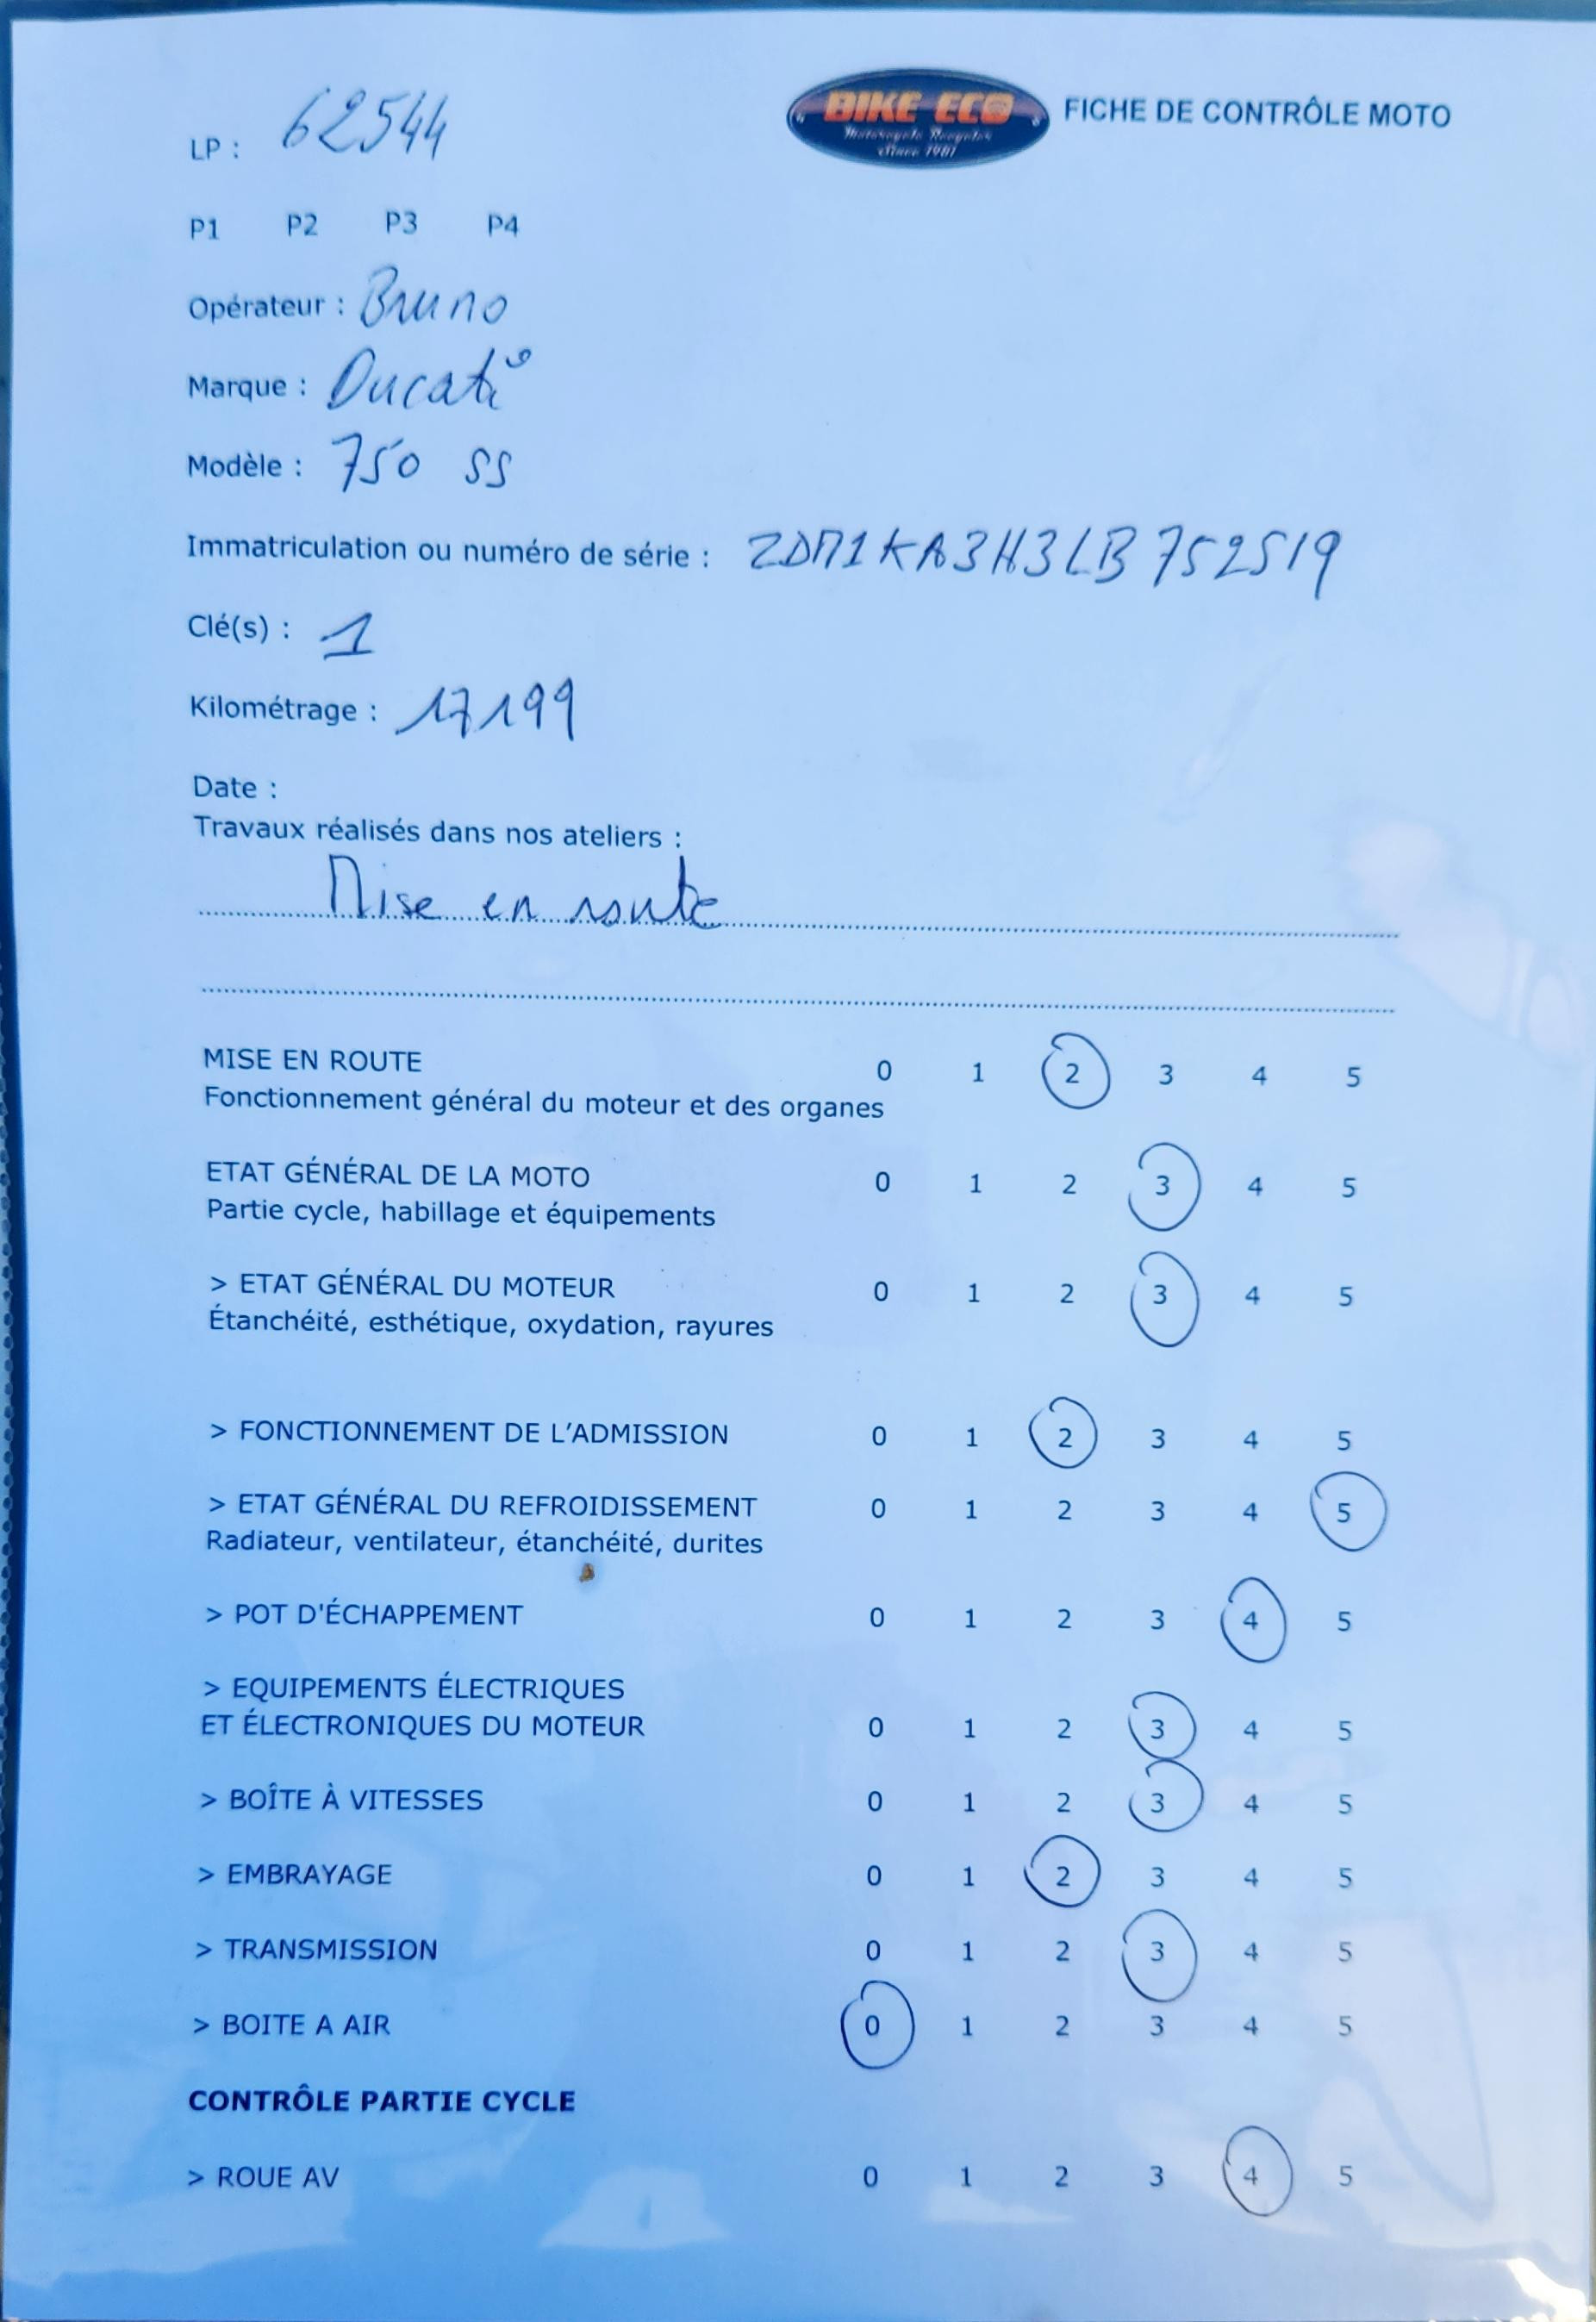 LP : 62544
BIKE ECO
Motorcycle Recycler
Since 1981
FICHE DE CONTRÔLE MOTO
P1 P2 P3 P4
Opérateur : Bruno
Marque : Ducati
Modèle : 750 SS
Immatriculation ou numéro de série : ZDM1KA3H3LB752519
Clé(s) : 1
Kilométrage : 17199
Date :
Travaux réalisés dans nos ateliers :
Mise en route
MISE EN ROUTE 0 1 2 3 4 5
Fonctionnement général du moteur et des organes
ETAT GÉNÉRAL DE LA MOTO 0 1 2 3 4 5
Partie cycle, habillage et équipements
> ETAT GÉNÉRAL DU MOTEUR 0 1 2 3 4 5
Étanchéité, esthétique, oxydation, rayures
> FONCTIONNEMENT DE L'ADMISSION 0 1 2 3 4 5
> ETAT GÉNÉRAL DU REFROIDISSEMENT 0 1 2 3 4 5
Radiateur, ventilateur, étanchéité, durites
> POT D'ÉCHAPPEMENT 0 1 2 3 4 5
> EQUIPEMENTS ÉLECTRIQUES
ET ÉLECTRONIQUES DU MOTEUR 0 1 2 3 4 5
> BOÎTE À VITESSES 0 1 2 3 4 5
> EMBRAYAGE 0 1 2 3 4 5
> TRANSMISSION 0 1 2 3 4 5
> BOITE A AIR 0 1 2 3 4 5
CONTRÔLE PARTIE CYCLE
> ROUE AV 0 1 2 3 4 5